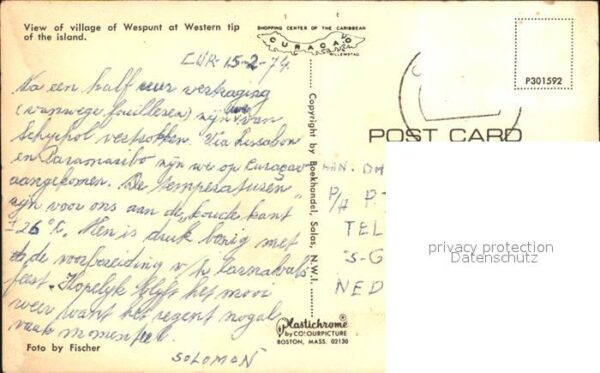 View of village of Wespunt at Western tip
of the island.
SHOPPING CENTER OF THE CARIBBEAN
CURACAO
WILLEMSTAD
P301592
CUR-15-2-74.
Na een half uur vertraging
(vanwege fouilleren) zijn we van
Schiphol vertrokken. Via Lissabon
en Paramaribo zijn we op Curaçao
aangekomen. De "temperaturen"
zijn voor ons aan de "koude kant"
± 26°C. Men is druk bezig met
de voorbereiding v/h Carnavals
feest. Hopelijk blijft het mooi
weer want het regent nogal
vaak momenteel.
SOLOMON
Foto by Fischer
Copyright by Boekhandel, Salas, N.W.I.
Plastichrome
by COLOURPICTURE
BOSTON, MASS. 02130
POST CARD
P/A P.
TEL
S-G
NED
privacy protection
Datenschutz